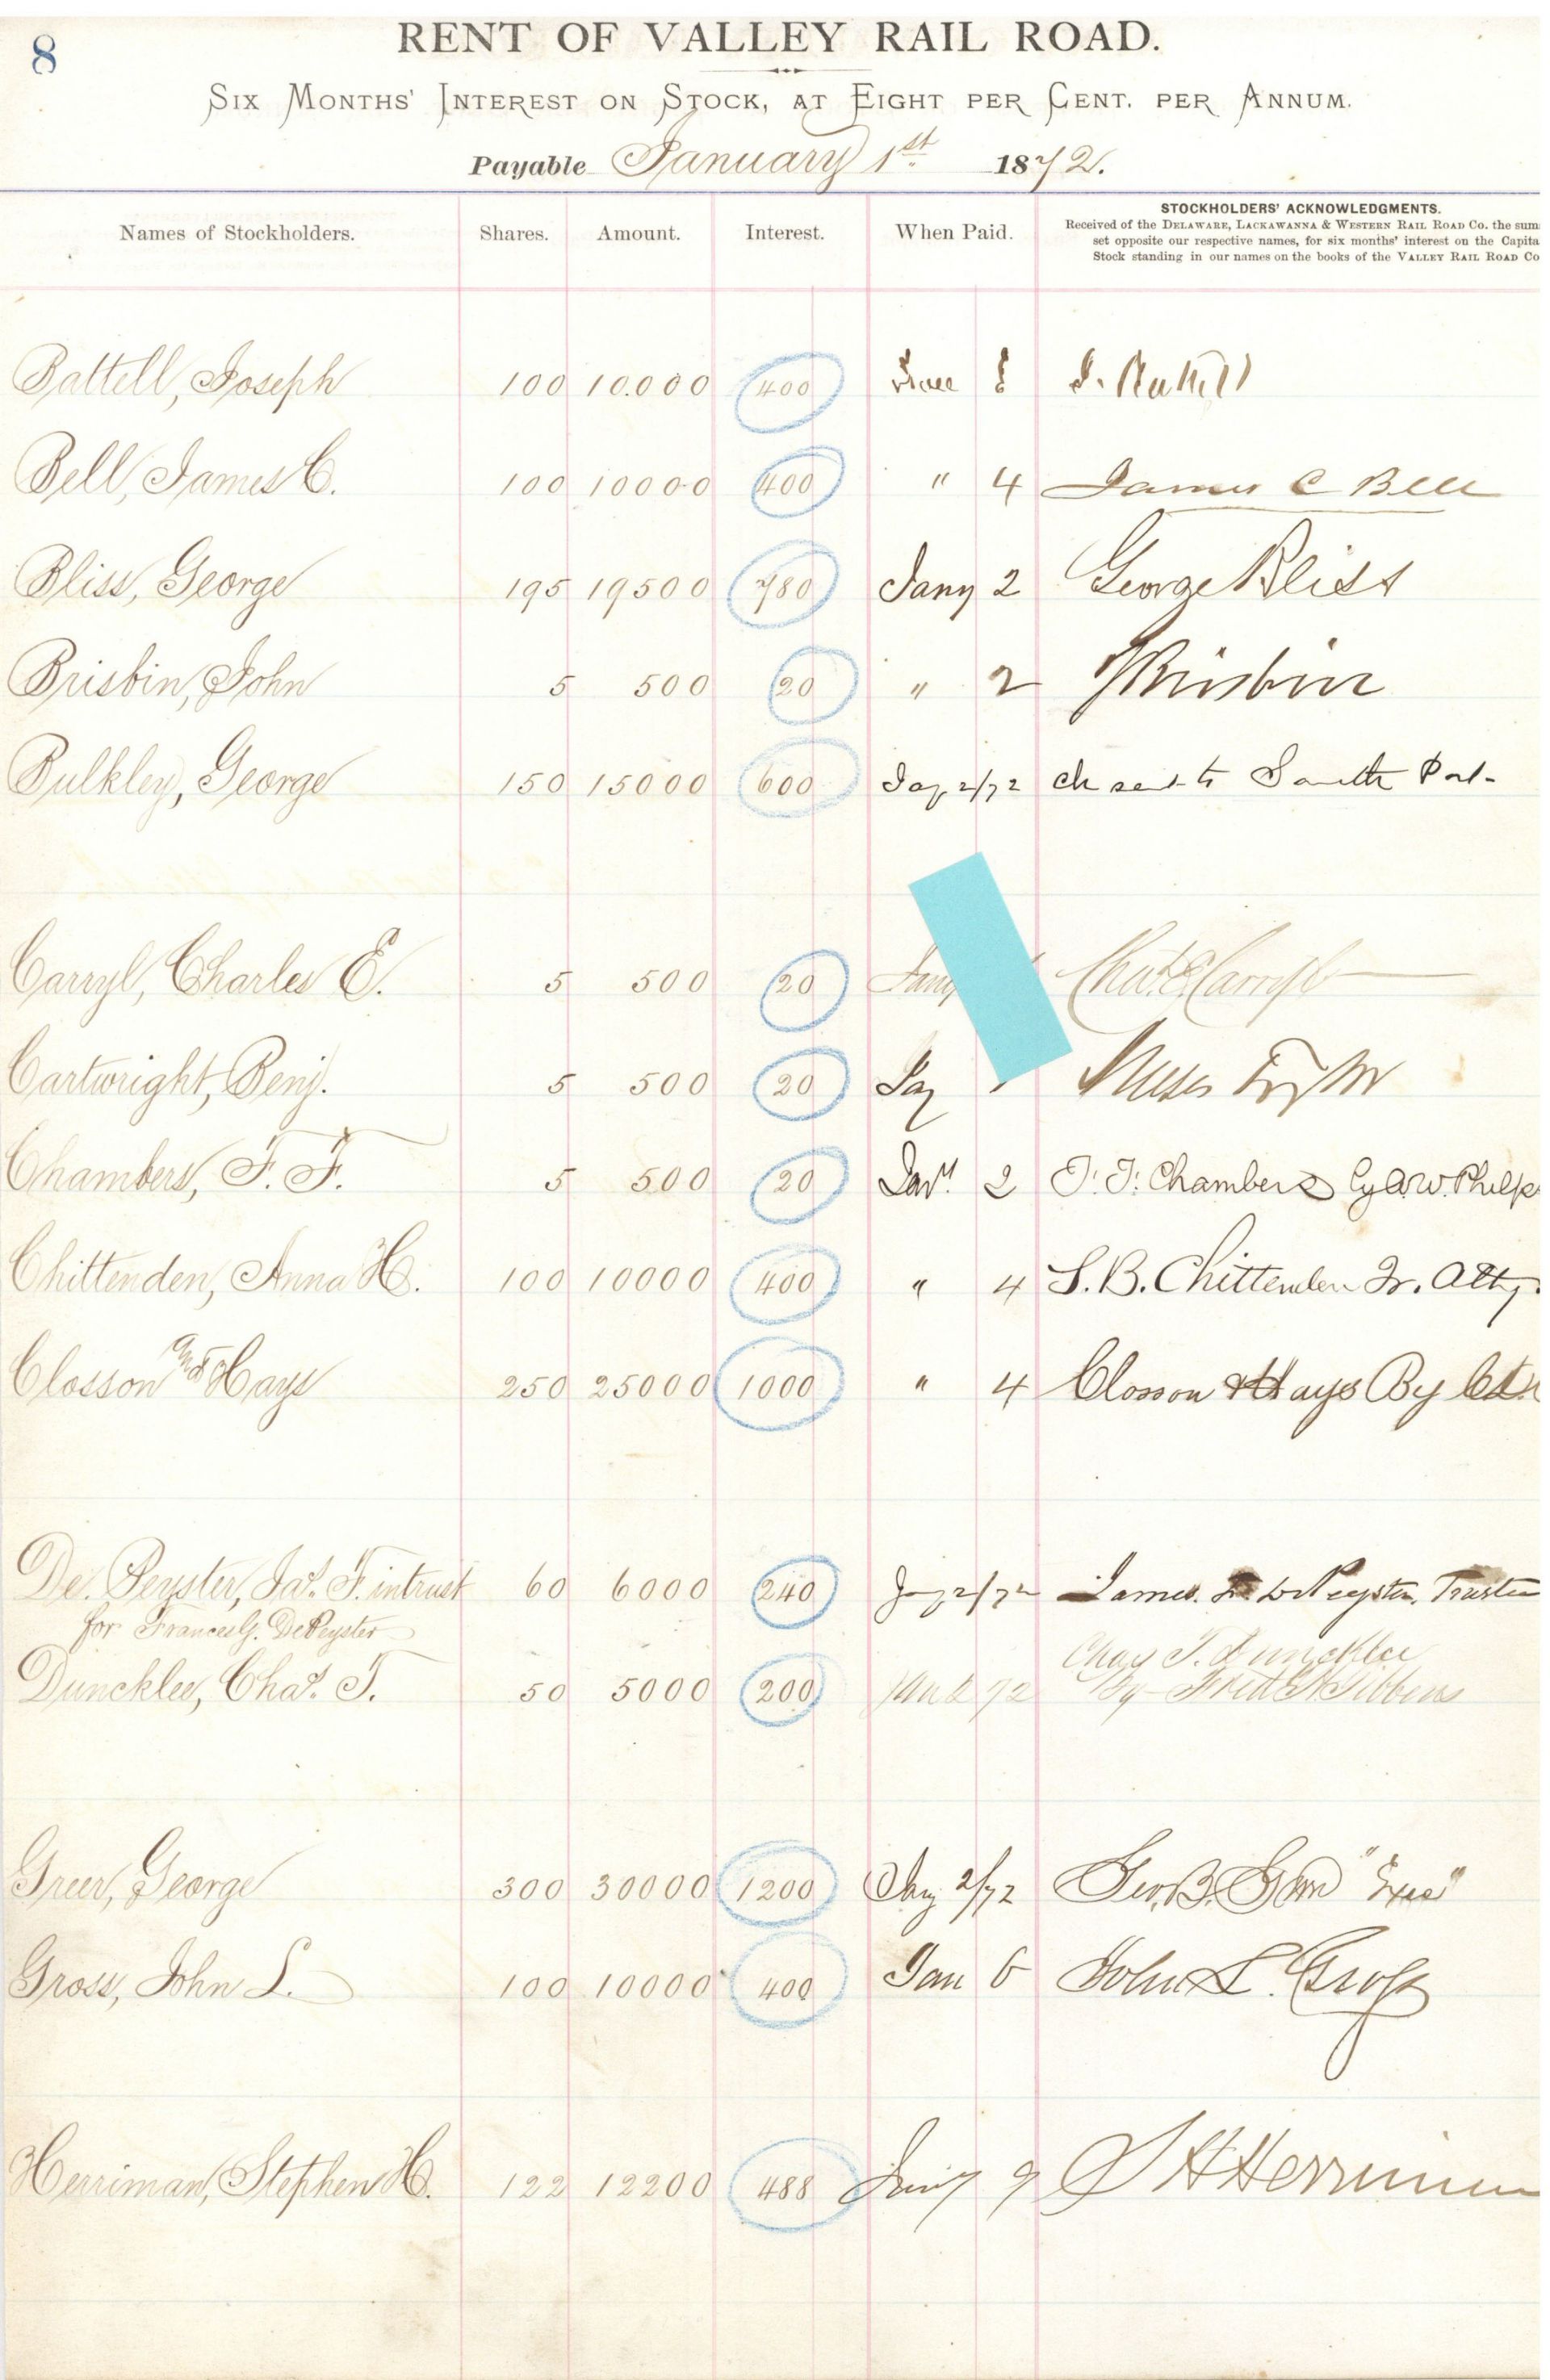 8
RENT OF VALLEY RAIL ROAD.
SIX MONTHS' INTEREST ON STOCK, AT EIGHT PER CENT. PER ANNUM.
Payable January 1st 1872.
Names of Stockholders. Shares. Amount. Interest. When Paid. STOCKHOLDERS' ACKNOWLEDGMENTS.
Received of the DELAWARE, LACKAWANNA & WESTERN RAIL ROAD Co. the sum
set opposite our respective names, for six months' interest on the Capita
Stock standing in our names on the books of the VALLEY RAIL ROAD Co
Battell, Joseph 100 10.000 400 J. Battell
Bell, James C. 100 10000 400 " 4 James C Bell
Bliss, George 195 19500 780 Jany 2 George Bliss
Brisbin, John 5 500 20 " 2 J Brisbin
Bulkley, George 150 15000 600 Jay 2/72 Ch sent to South Port
Carryl, Charles E. 5 500 20 Jany Chas. E. Carryl
Cartwright, Benj. 5 500 20 Jay
Chambers, F. F. 5 500 20 Jany. 2 F. F. Chambers by A.W. Phelps
Chittenden, Anna H. 100 10000 400 " 4 S. B. Chittenden Jr. Atty.
Closson and Hays 250 25000 1000 " 4 Closson & Hays By
De. Peyster, Jas. F. intrust 60 6000 240 Jay 2/72 James. F. DePeyster. Trustee
for Frances G. DePeyster
Duncklee, Chas. T. 50 5000 200 Jan 2 72 Chas T. Duncklee
By Fred H Gibbens
Greer, George 300 30000 1200 Jay 2/72 Geo. B. Greer "Exec"
Gross, John L. 100 10000 400 Jan 6 John L. Gross
Herriman, Stephen H. 122 12200 488 Jany 9 S H Herriman